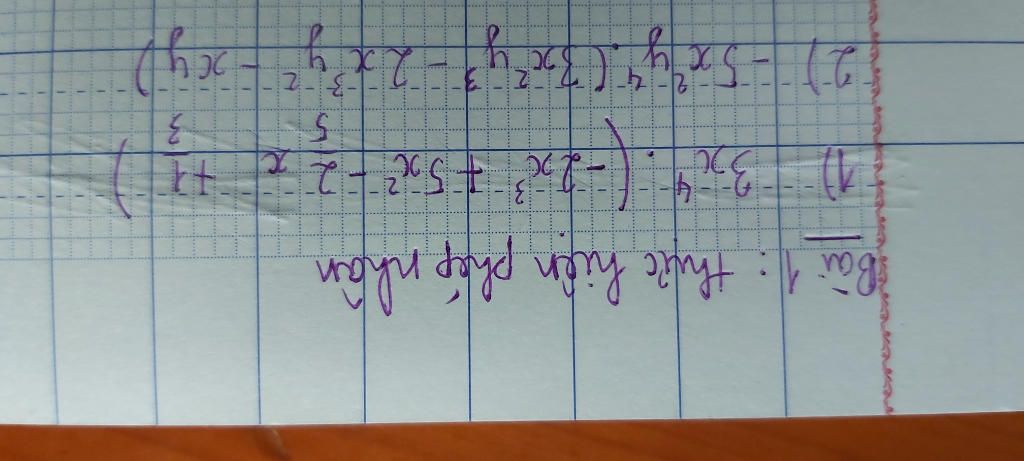 Bài 1: thực hiện phép nhân
1) 3x⁴ . (-2x³ + 5x² - 2/5 x + 1/3)
2) -5x²y⁴ . (3x²y³ - 2x³y² - xy)